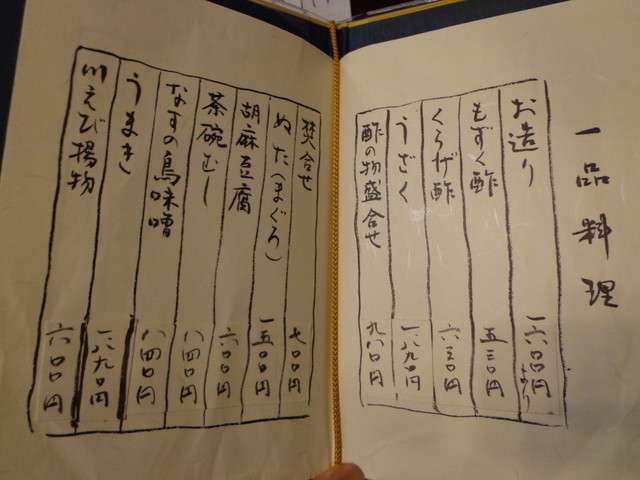 一品料理
お造り 一六〇〇円より
もずく酢 五三〇円
くらげ酢 六三〇円
うざく 一八九〇円
酢の物盛合せ 九八〇円
焚合せ 七〇〇円
ぬた(まぐろ) 一五〇〇円
胡麻豆腐 六〇〇円
茶碗むし 八四〇円
なすの鳥味噌 八四〇円
うまき 一八九〇円
川えび揚物 六〇〇円